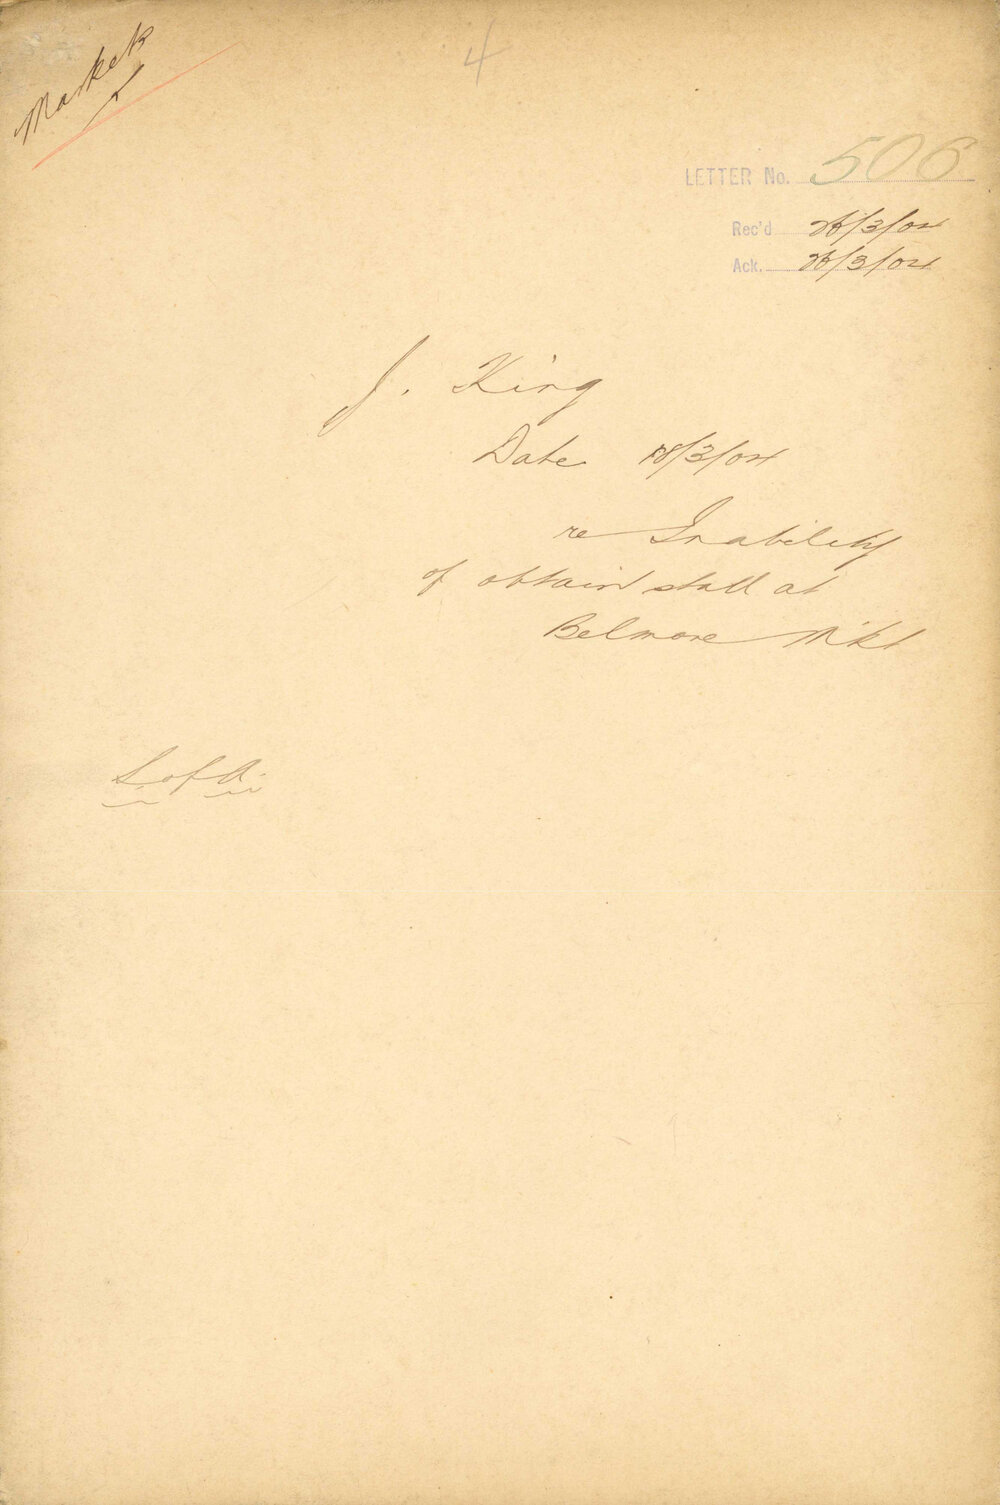 Market
4
LETTER No. 506
Rec'd /3/04
Ack. /3/04
J. King
Date 18/3/04
re Inability
of obtain stall at
Belmore Mkt